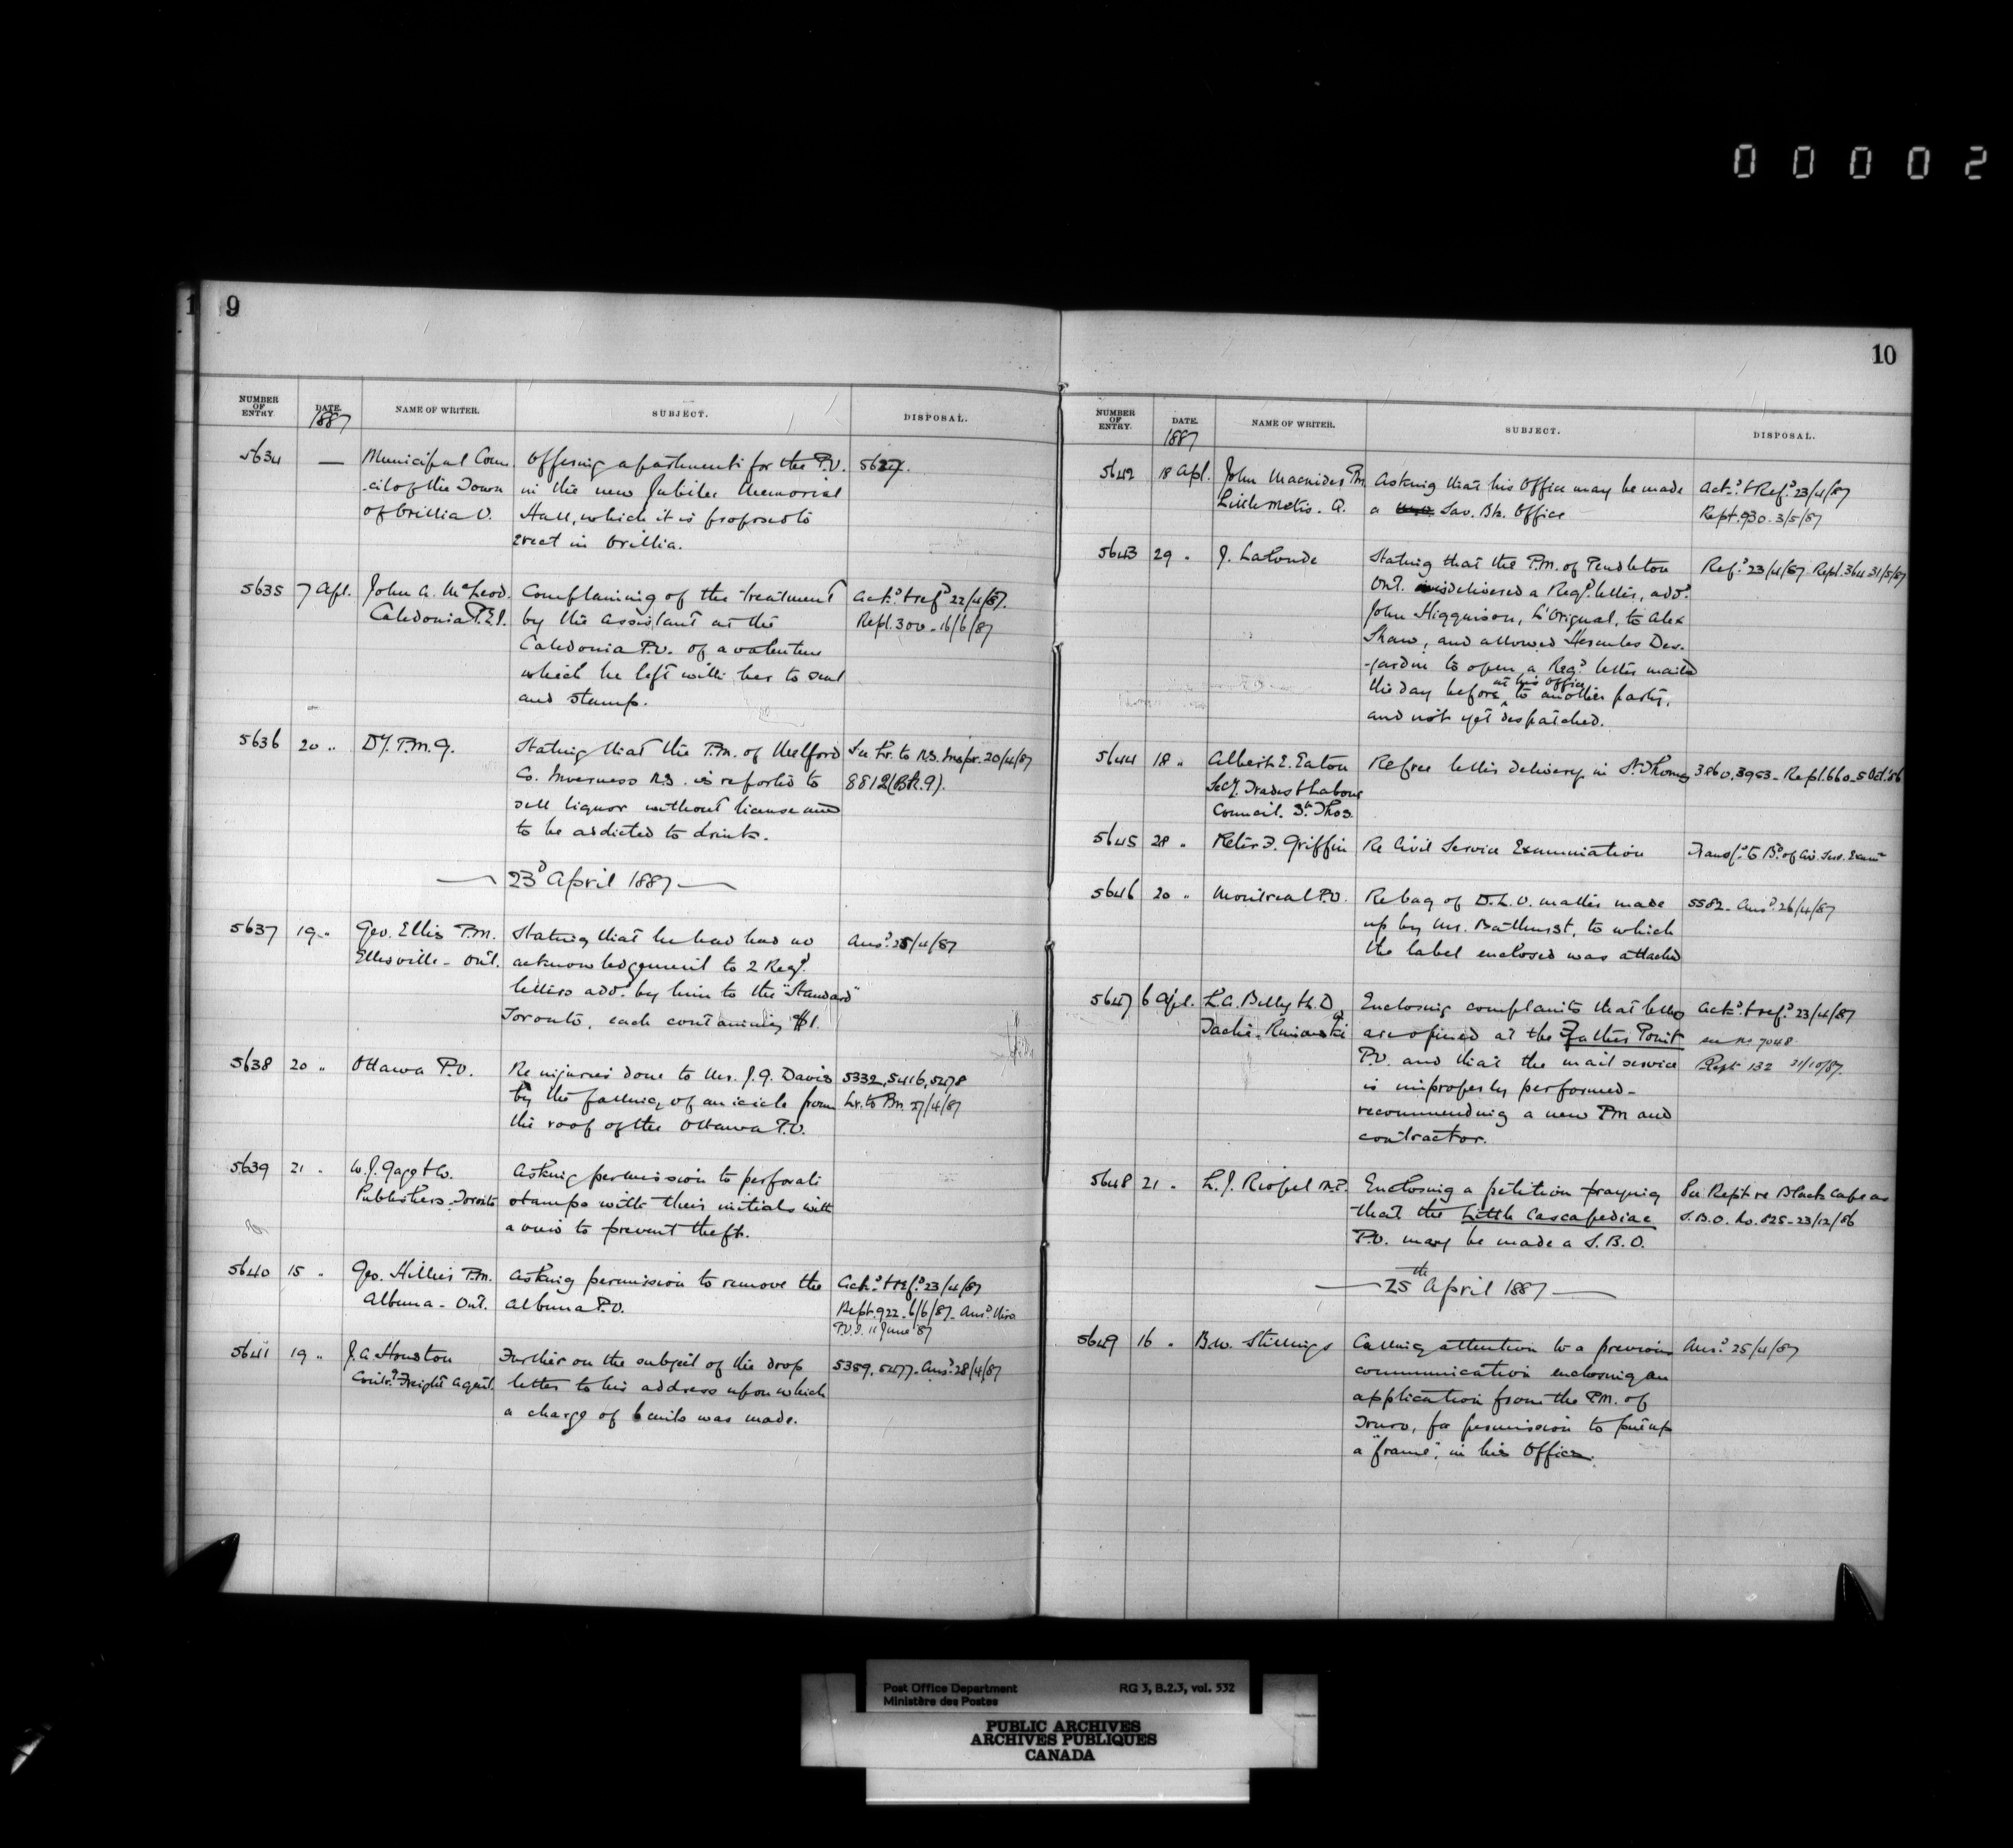 00002
1 9
NUMBER OF ENTRY. DATE. NAME OF WRITER. SUBJECT. DISPOSAL.
1887
5634 — Municipal Coun- Offering apartments for the P.O. 5627.
-cil of the Town in the new Jubilee Memorial
of Orillia O. Hall, which it is proposed to
erect in Orillia.
5635 7 Apl. John A. McLeod. Complaining of the treatment Ack.d & ref.d 22/4/87.
Caledonia P.E.I. by the assistant at the Rept. 300 - 16/6/87
Caledonia P.O. of a valentine
which he left with her to seal
and stamp.
5636 20 " Dy. P.M.G. Stating that the P.M. of Melford See Lr. to N.S. Inspr. 20/4/87
Co. Inverness N.S. is reported to 8812 (Bk. 9).
sell liquor without license and
to be addicted to drink.
— 23d April 1887 —
5637 19 " Geo. Ellis P.M. Stating that he had had no Ans.d 25/4/87
Ellisville - Ont. acknowledgement to 2 Reg.d
letters add.d by him to the "Standard"
Toronto, each containing $1.
5638 20 " Ottawa P.O. Re injuries done to Mr. J.G. Davis 5332, 5416, 5478
by the falling of an icicle from Lr. to Pm. 27/4/87
the roof of the Ottawa P.O.
5639 21 " W.J. Gage & Co. Asking permission to perforate
Publishers. Toronto stamps with their initials with
a view to prevent theft.
5640 15 " Geo. Hillier P.M. Asking permission to remove the Ack.d & ref.d 23/4/87
Albuna - Ont. Albuna P.O. Rept. 922 - 6/6/87 - Ans.d thro
P.O.I. 11 June '87
5641 19 " J.A. Houston Further on the subject of the drop 5389, 5477 - Ans.d 28/4/87
Freight Agent. letter to his address upon which
a charge of 6 cents was made.
10
NUMBER OF ENTRY. DATE. NAME OF WRITER. SUBJECT. DISPOSAL.
1887
5642 18 Apl. John Macnider Pm. Asking that his Office may be made Ack.d & Ref.d 23/4/87
Little Metis. Q. a Sav. Bk. Office Rept. 930. 3/5/87
5643 29 " J. Lalonde Stating that the P.M. of Pendleton Ref.d 23/4/87 Rept. 364 31/5/87
Ont. misdelivered a Reg.d letter, add.d
John Higginson, L'Orignal, to Alex
Shaw, and allowed Hercules Des-
-jardin to open a Reg.d letter mailed
at his office
the day before to another party,
and not yet despatched.
5644 18 " Albert E. Eaton Re free letter delivery in St. Thomas 3860, 3953 - Rept. 660 - 5 Oct. '86
Sec'y. Trades & Labour
Council. St. Thos.
5645 28 " Peter F. Griffin Re Civil Service Examination Transf.d to B.d of Civ. Serv. Exam.rs
5646 20 " Montreal P.O. Re bag of D.L.O. matter made 5582 - Ans.d 26/4/87
up by Mr. Bathurst, to which
the label enclosed was attached
5647 6 Apl. L.A. Billy M.D. Enclosing complaints that letters Ack.d & ref.d 23/4/87
Taché. Rimouski are opened at the Father Point see no 7048
P.O. and that the mail service Rept 132 21/10/87.
is improperly performed -
recommending a new P.M and
contractor.
5648 21 " L.J. Riopel M.P. Enclosing a petition praying See Rept re Black Cape as
that the Little Cascapediac S.B.O. No. 825 - 23/12/86
P.O. may be made a S.B.O.
— 25th April 1887 —
5649 16 " B.W. Stillings Calling attention to a previous Ans.d 25/4/87
communication enclosing an
application from the P.M. of
Truro, for permission to put up
a "frame", in his Office.
Post Office Department RG 3, B.2.3, vol. 532
Ministère des Postes
PUBLIC ARCHIVES
ARCHIVES PUBLIQUES
CANADA